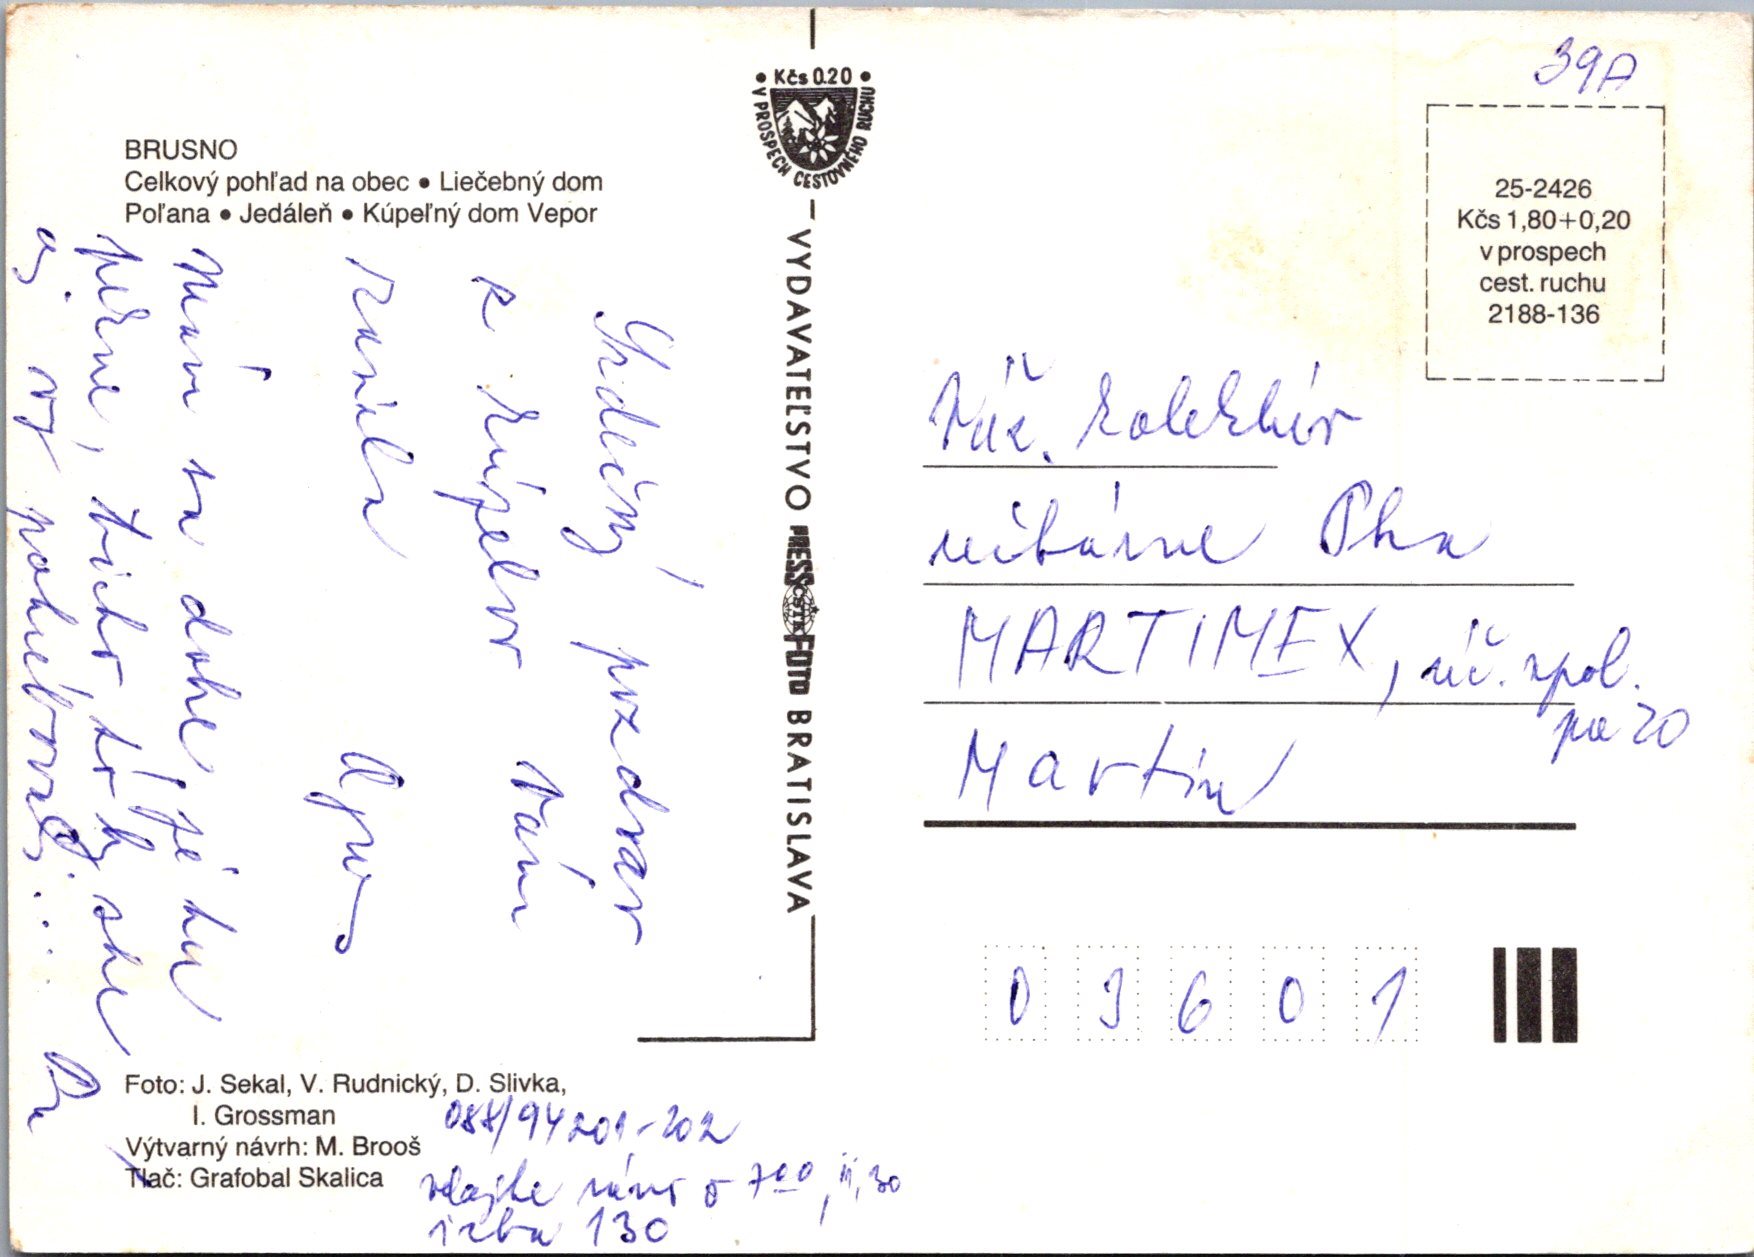 BRUSNO
Celkový pohľad na obec • Liečebný dom
Poľana • Jedáleň • Kúpeľný dom Vepor
• Kčs 0.20 •
V PROSPECH CESTOVNÉHO RUCHU
VYDAVATEĽSTVO PRESSFOTO BRATISLAVA
ČSTK
39A
25-2426
Kčs 1,80+0,20
v prospech
cest. ruchu
2188-136
Srdečný pozdrav
z kúpeľov Vám
Mám sa dobre, je tu
aj vy potrebovali...
Váž. kolektív
učtárne Pha
MARTIMEX, úč. spol.
Martin
03601
Foto: J. Sekal, V. Rudnický, D. Slivka,
I. Grossman
Výtvarný návrh: M. Brooš
Tlač: Grafobal Skalica
088/94201-202
ráno o 7 00, 11,30
izba 130